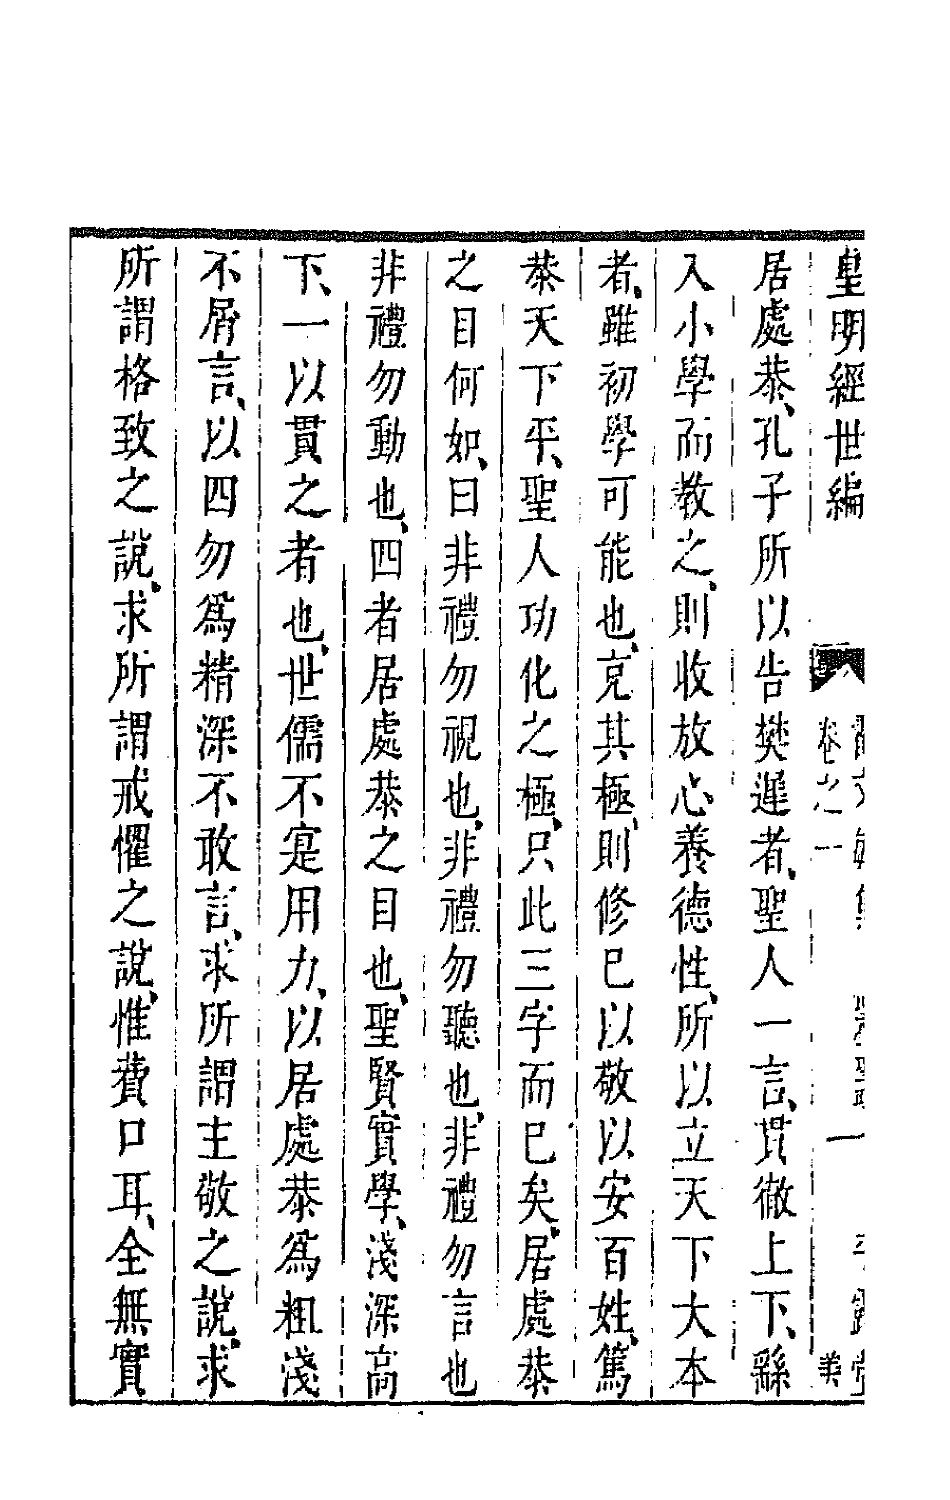 皇明經世編
卷之一
一
美
居處恭、孔子所以告樊遲者、聖人一言、貫徹上下、繇
入小學而教之、則收放心養德性、所以立天下大本
者、雖初學可能也、克其極、則修己以敬以安百姓、篤
恭天下平、聖人功化之極、只此三字而已矣、居處恭
之目何如、曰非禮勿視也、非禮勿聽也、非禮勿言也
非禮勿動也、四者居處恭之目也、聖賢實學、淺深高
下、一以貫之者也、世儒不寔用力、以居處恭爲粗淺
不屑言、以四勿爲精深不敢言、求所謂主敬之說、求
所謂格致之說、求所謂戒懼之說、惟費口耳、全無實